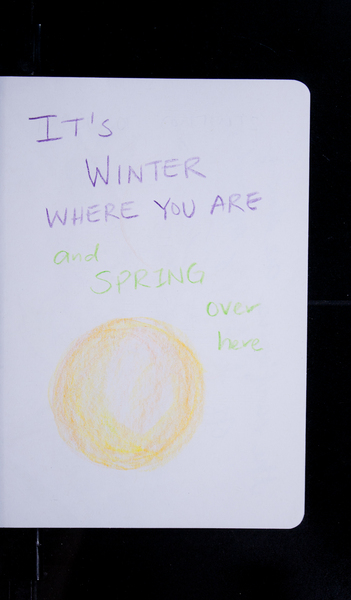 IT'S
WINTER
WHERE YOU ARE
and
SPRING
over
here